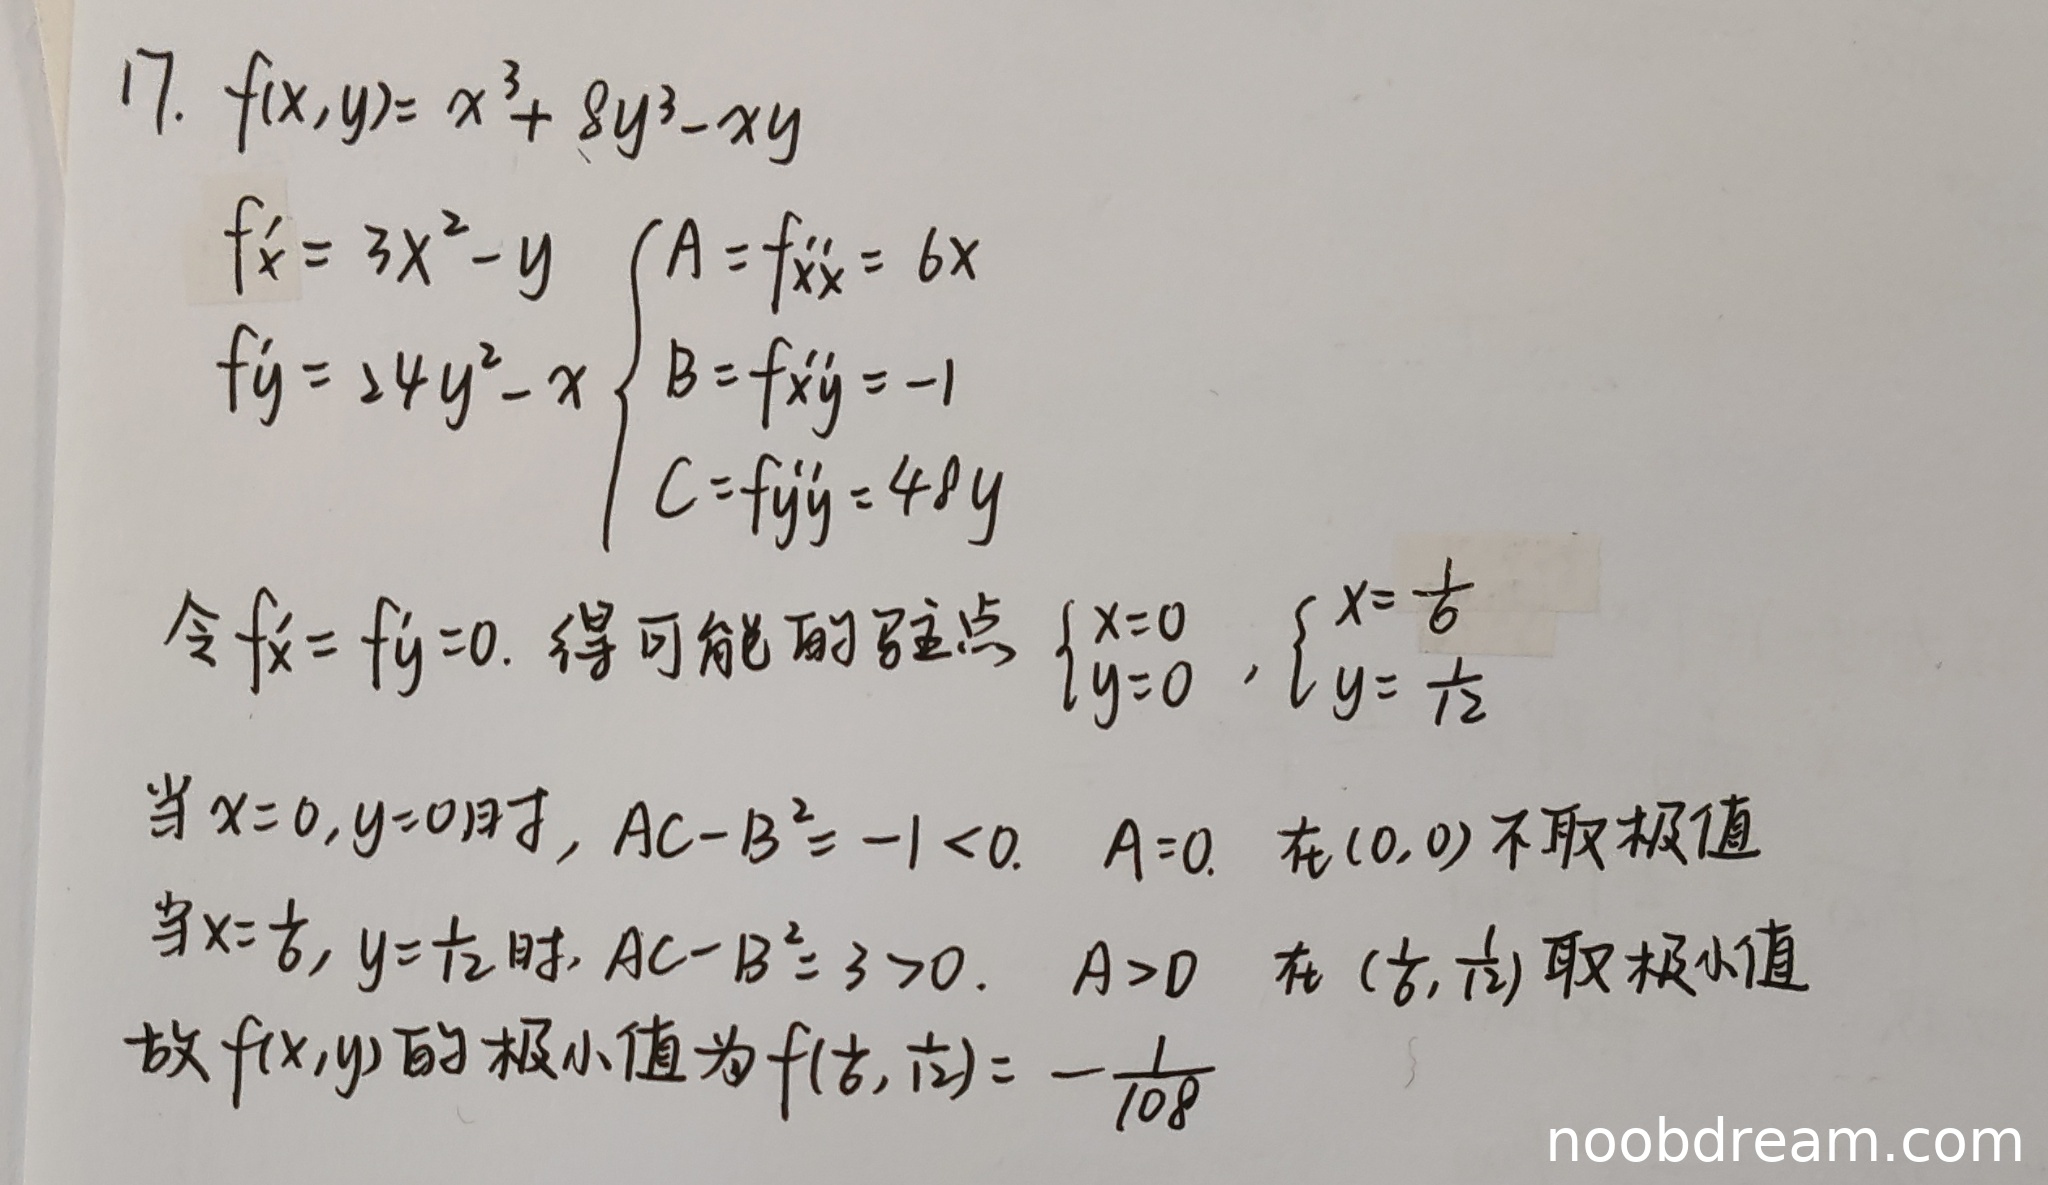 17. f(x,y)= x³+ 8y³-xy
f'x = 3x²-y
A = f''xx = 6x
f'y = 24y²-x
B = f''xy = -1
C = f''yy = 48y
令 f'x = f'y =0. 得可能的驻点 { x=0 y=0 , { x= 1/6 y= 1/12
当 x=0, y=0时, AC-B²= -1 <0. A=0. 在(0,0)不取极值
当x=1/6, y=1/12时, AC-B²= 3 >0. A>0 在 (1/6, 1/12) 取极小值
故 f(x,y) 的极小值为 f(1/6, 1/12) = -1/108
noobdream.com